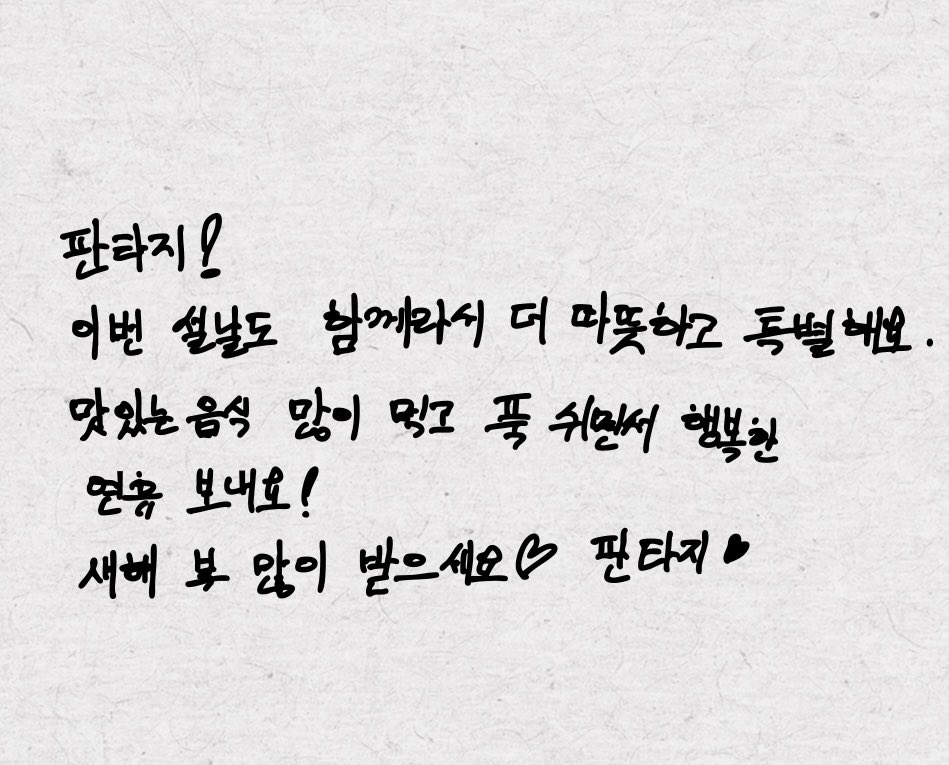 판타지!
이번 설날도 함께라서 더 따뜻하고 특별해요.
맛있는 음식 많이 먹고 푹 쉬면서 행복한
연휴 보내요!
새해 복 많이 받으세요♡ 판타지♥